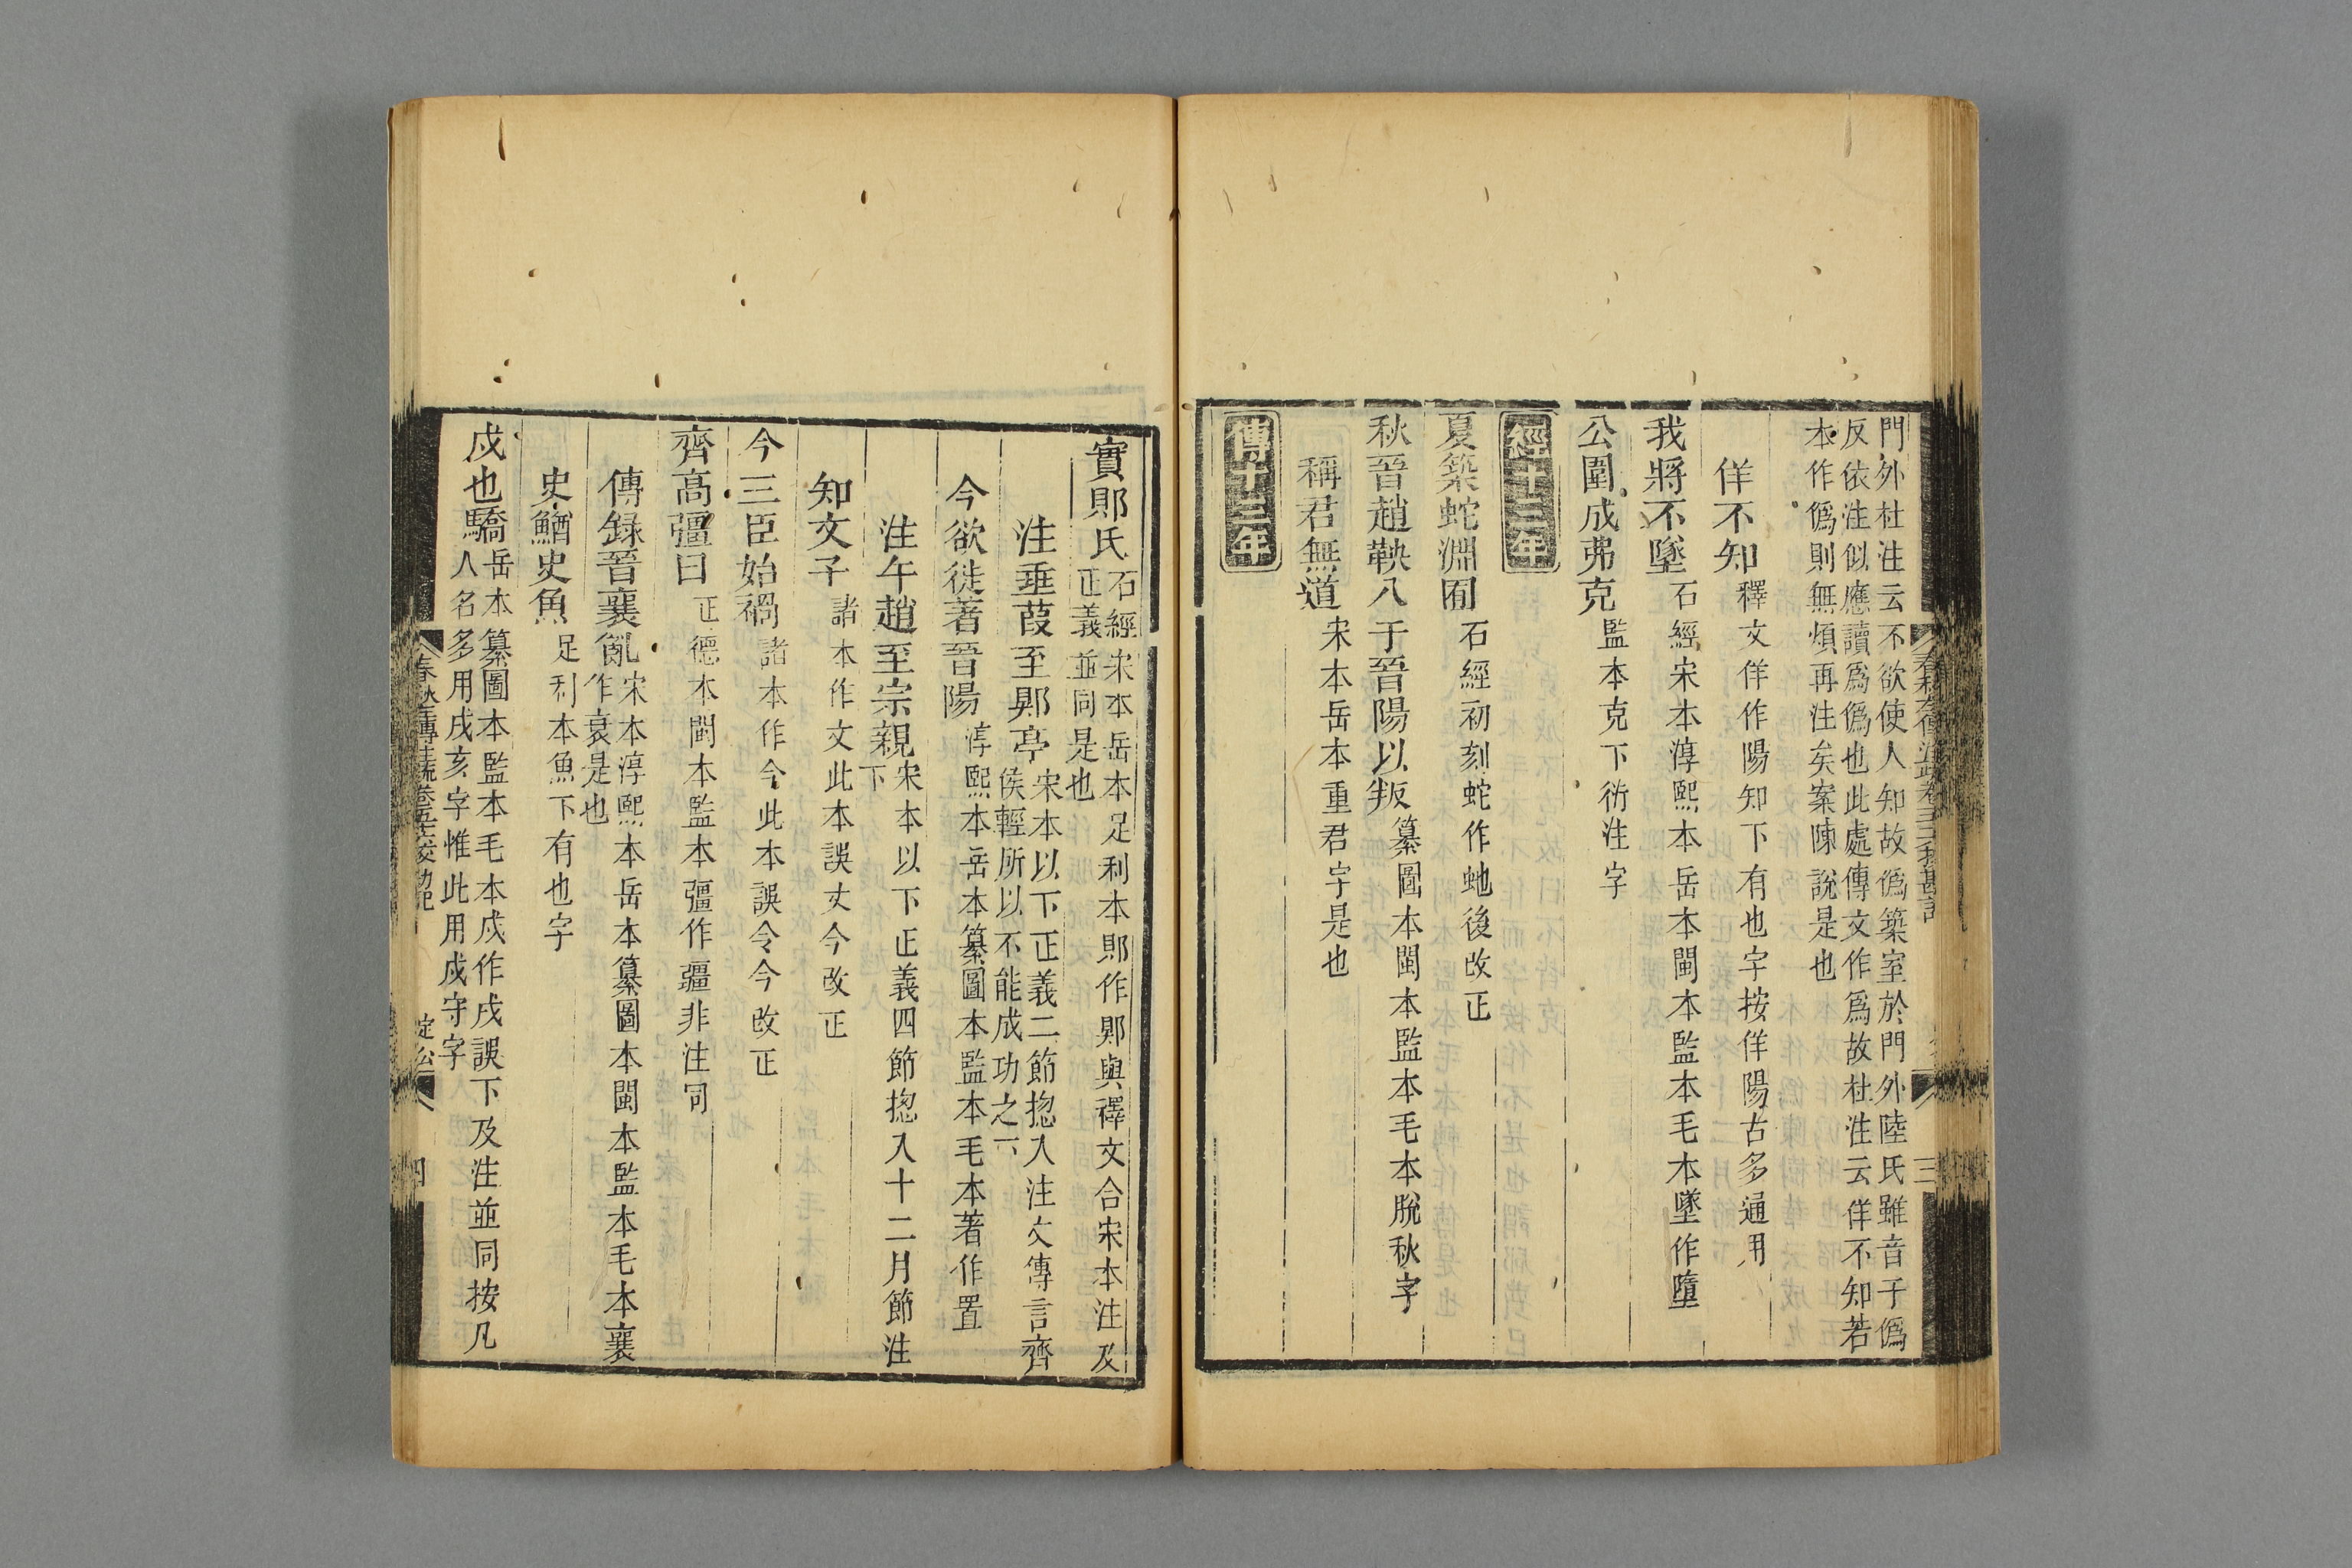 門外杜注云不欲使人知故僞築室於門外陸氏雖音子僞
反依注似應讀爲僞也此處傳文作爲故杜注云佯不知若
本作僞則無煩再注矣案陳說是也
佯不知釋文佯作陽知下有也字按佯陽古多通用
我將不墜石經宋本淳熙本岳本閩本監本毛本墜作墮
公圍成弗克監本克下衍注字
經十三年
夏築蛇淵囿石經初刻蛇作虵後改正
秋晉趙鞅入于晉陽以叛纂圖本閩本監本毛本脫秋字
稱君無道宋本岳本重君字是也
傳十三年
實郥氏石經宋本岳本足利本郥作郹與釋文合宋本注及
正義並同是也
注垂葭至郹亭宋本以下正義二節揔入注文傳言齊
侯輕所以不能成功之下
今欲徙著晉陽淳熙本岳本纂圖本監本毛本著作置
注午趙至宗親宋本以下正義四節揔入十二月節注
下
知文子諸本作文此本誤丈今改正
今三臣始禍諸本作今此本誤令今改正
齊高彊曰正德本閩本監本彊作疆非注同
傳録晉襄亂宋本淳熙本岳本纂圖本閩本監本毛本襄
作衰是也
史鰌史魚足利本魚下有也字
戍也驕岳本纂圖本監本毛本戍作戌誤下及注並同按凡
人名多用戌亥字惟此用戍守字